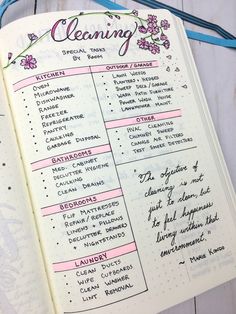 Cleaning
SPECIAL TASKS
BY ROOM
KITCHEN
• OVEN
• MICROWAVE
• DISHWASHER
• RANGE
• FREEZER
• REFRIGERATOR
• PANTRY
• CAULKING
• GARBAGE DISPOSAL
BATHROOMS
• MED. CABINET
• DECLUTTER HYGIENE
• CAULKING
• CLEAN DRAINS
BEDROOMS
• FLIP MATTRESSES
• REPAIR/REPLACE
LINENS & PILLOWS
• DECLUTTER DRAWERS
+ NIGHTSTANDS
LAUNDRY
• CLEAN DUCTS
• WIPE CUPBOARDS
• CLEAN WASHER
• LINT REMOVAL
OUTDOOR/GARAGE
• LAWN WEEDS
• PLANTERS + HEDGES
• SWEEP DECK/GARAGE
• WASH PATIO FURNITURE
• POWER WASH HOUSE
• LAWNMOWER MAINT.
OTHER
• HVAC CLEANING
• CHIMNEY SWEEP
• CHANGE AIR FILTERS
• TEST SMOKE DETECTORS
"The objective of
cleaning is not
just to clean, but
to feel happiness
living within that
environment."
~ MARIE KONDO